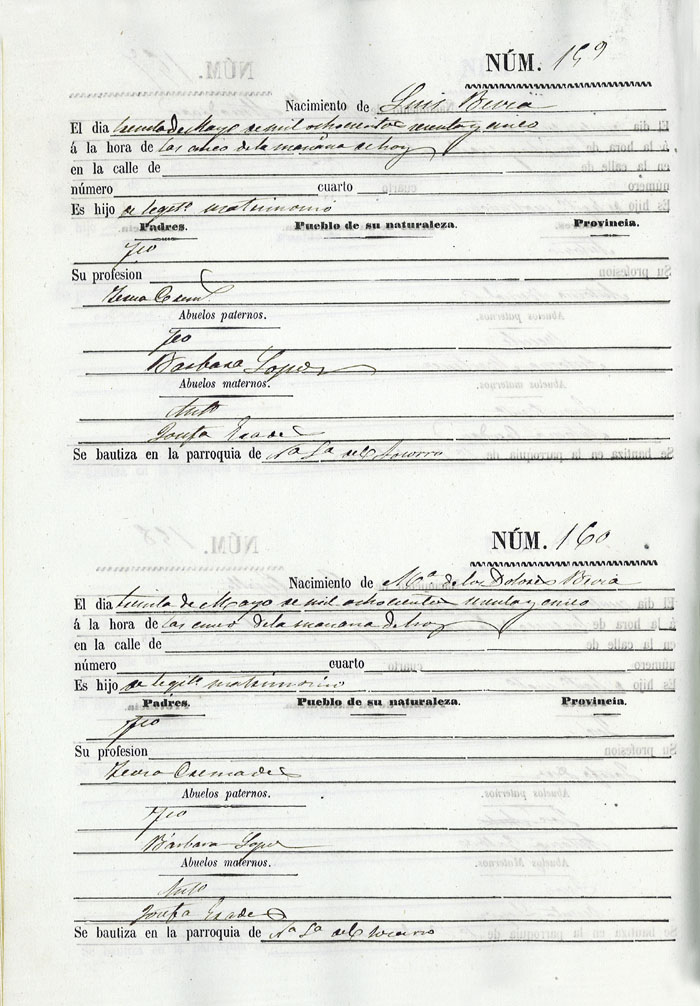 NÚM. 159
Nacimiento de Luis Brevia
El dia treinta de Mayo de mil ochocientos setenta y cinco
á la hora de las cinco de la mañana de hoy
en la calle de
número cuarto
Es hijo de legit.º matrimonio
Padres. Pueblo de su naturaleza. Provincia.
Fco
Su profesion

Abuelos paternos.
Fco
Barbara Lopez
Abuelos maternos.
Anto
Josefa
Se bautiza en la parroquia de Nª Sª del Socorro
NÚM. 160
Nacimiento de Mª de los Dolores Brevia
El dia treinta de Mayo de mil ochocientos setenta y cinco
á la hora de las cinco de la mañana de hoy
en la calle de
número cuarto
Es hijo de legit.º matrimonio
Padres. Pueblo de su naturaleza. Provincia.
Fco
Su profesion
Abuelos paternos.
Fco
Bárbara Lopez
Abuelos maternos.
Anto
Josefa
Se bautiza en la parroquia de Nª Sª del Socorro